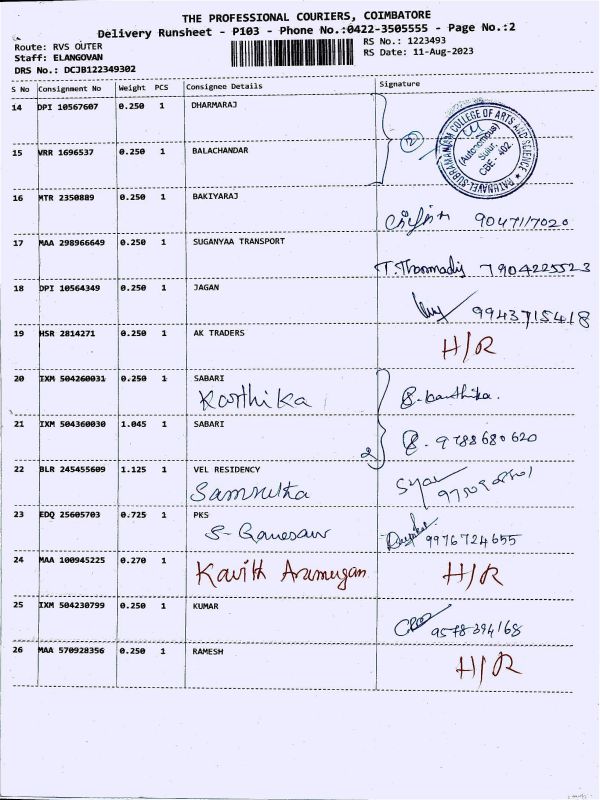 THE PROFESSIONAL COURIERS, COIMBATORE
Delivery Runsheet - P103 - Phone No.:0422-3505555 - Page No.:2
Route: RVS OUTER
RS No.: 1223493
Staff: ELANGOVAN
RS Date: 11-Aug-2023
DRS No.: DCJB122349302
S No Consignment No Weight PCS Consignee Details Signature
14 DPI 10567607 0.250 1 DHARMARAJ
RATHNAVEL SUBRAMANIAM COLLEGE OF ARTS AND SCIENCE
(Autonomous)
Sulur,
CBE - 402.
2
15 VRR 1696537 0.250 1 BALACHANDAR
16 MTR 2350889 0.250 1 BAKIYARAJ
9047117020
17 MAA 298966649 0.250 1 SUGANYAA TRANSPORT
7904225523
18 DPI 10564349 0.250 1 JAGAN
9943715418
19 HSR 2814271 0.250 1 AK TRADERS
H/R
20 IXM 504260031 0.250 1 SABARI
Karthika
21 IXM 504360030 1.045 1 SABARI
9788680620
2
22 BLR 245455609 1.125 1 VEL RESIDENCY
Samrutha
23 EDQ 25605703 0.725 1 PKS
S-Ganesan
9976724655
24 MAA 100945225 0.270 1
Kavith Arumugam
H/R
25 IXM 504230799 0.250 1 KUMAR
9578394168
26 MAA 570928356 0.250 1 RAMESH
H/R